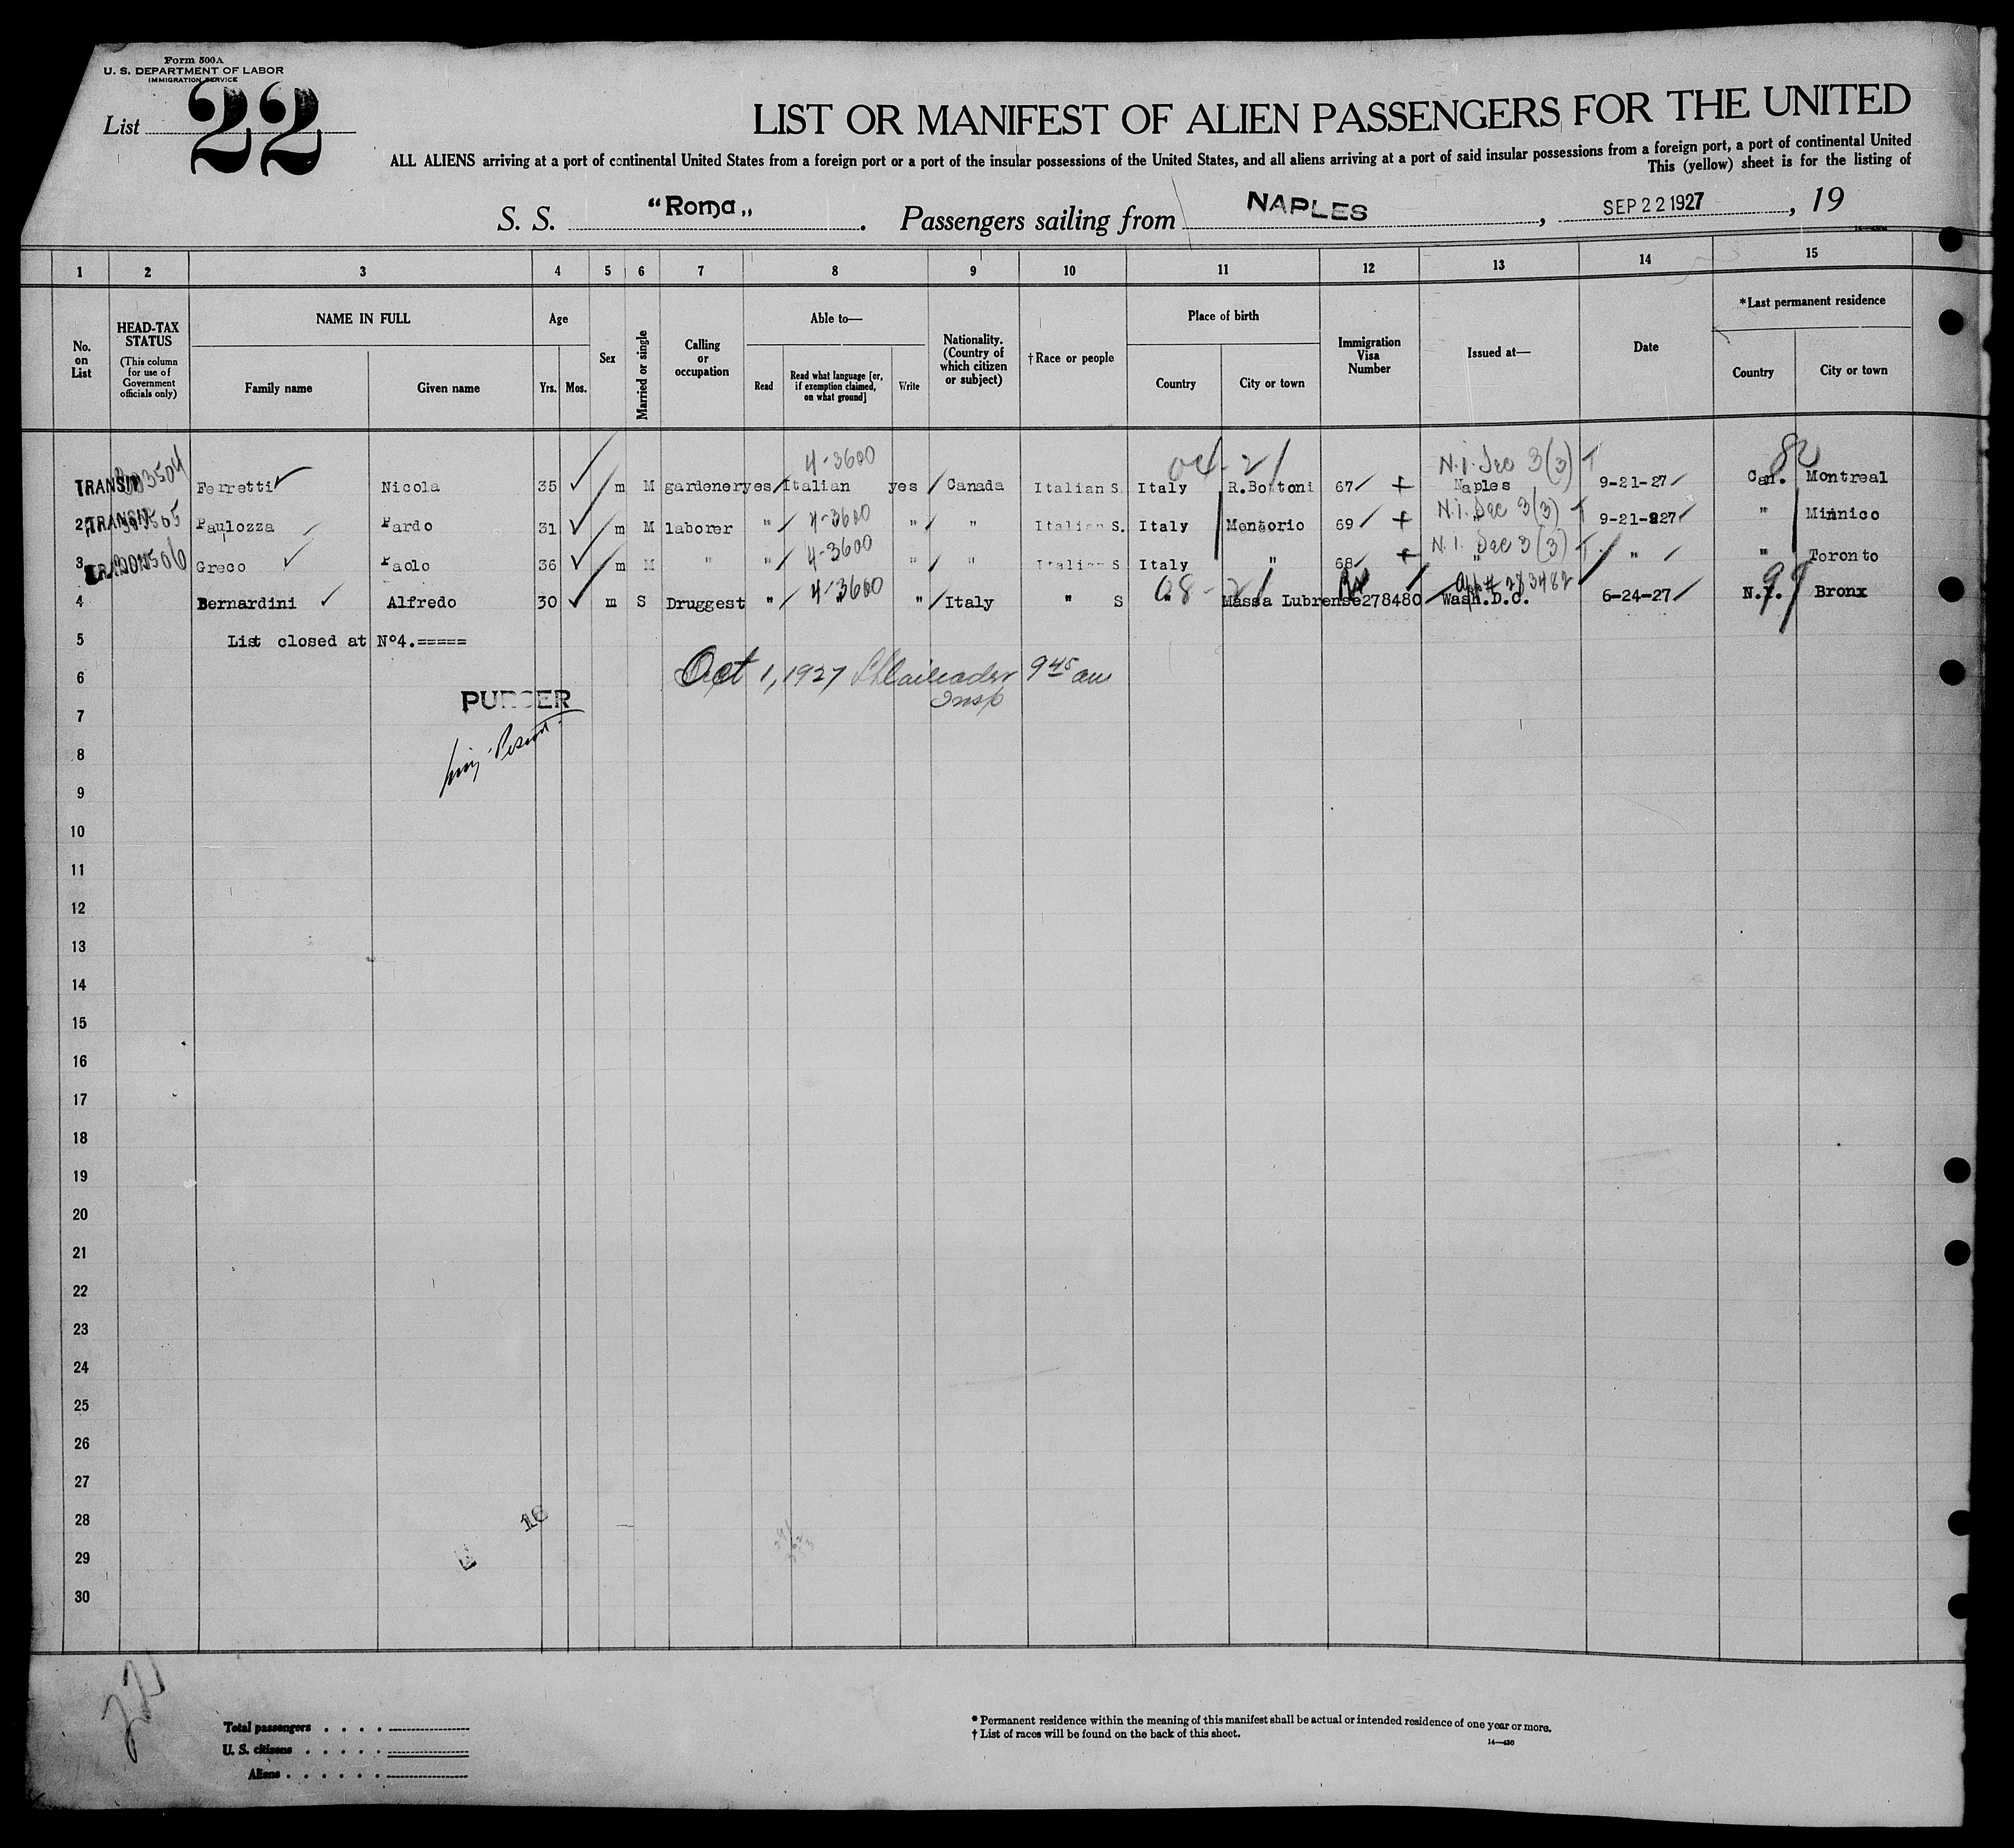 Form 500A
U. S. DEPARTMENT OF LABOR
IMMIGRATION SERVICE
List 22
LIST OR MANIFEST OF ALIEN PASSENGERS FOR THE UNITED
ALL ALIENS arriving at a port of continental United States from a foreign port or a port of the insular possessions of the United States, and all aliens arriving at a port of said insular possessions from a foreign port, a port of continental United
This (yellow) sheet is for the listing of
S. S. "Roma". Passengers sailing from NAPLES, SEP 22 1927, 19
1 2 3 4 5 6 7 8 9 10 11 12 13 14 15
No. on List
HEAD-TAX STATUS
(This column for use of Government officials only)
NAME IN FULL
Family name Given name
Age
Yrs. Mos.
Sex
Married or single
Calling or occupation
Able to—
Read
Read what language [or, if exemption claimed, on what ground]
Write
Nationality. (Country of which citizen or subject)
†Race or people
Place of birth
Country City or town
Immigration Visa Number
Issued at—
Date
*Last permanent residence
Country City or town
4-3600 04-21 N.I. Sec 3(3) T 82
TRANSIT Ferretti Nicola 35 m M gardener yes Italian yes Canada Italian S. Italy 67 Naples 9-21-27 Can. Montreal
4-3600 N.I. Sec 3(3) T
2 TRANSIT Paulozza Pardo 31 m M laborer " " " Italian S. Italy 69 " 9-21-27 " Minnico
4-3600 N.I. Sec 3(3) T
3 Greco Paolo 36 m M " " " " Italian S Italy " 68 " " " Toronto
4-3600 08-21 283482 99
4 Bernardini Alfredo 30 m S Druggest " " " Italy " S " Massa Lubrense 278480 Wash.D.C. 6-24-27 N.Y. Bronx
5 List closed at Nº4.=====
6 Oct 1, 1927 9 45 am
Insp
PURSER
7
8
9
10
11
12
13
14
15
16
17
18
19
20
21
22
23
24
25
26
27
28 16
29
30
Total passengers . . . .
U. S. citizens . . . . .
Aliens . . . . . .
* Permanent residence within the meaning of this manifest shall be actual or intended residence of one year or more.
† List of races will be found on the back of this sheet.
14—430